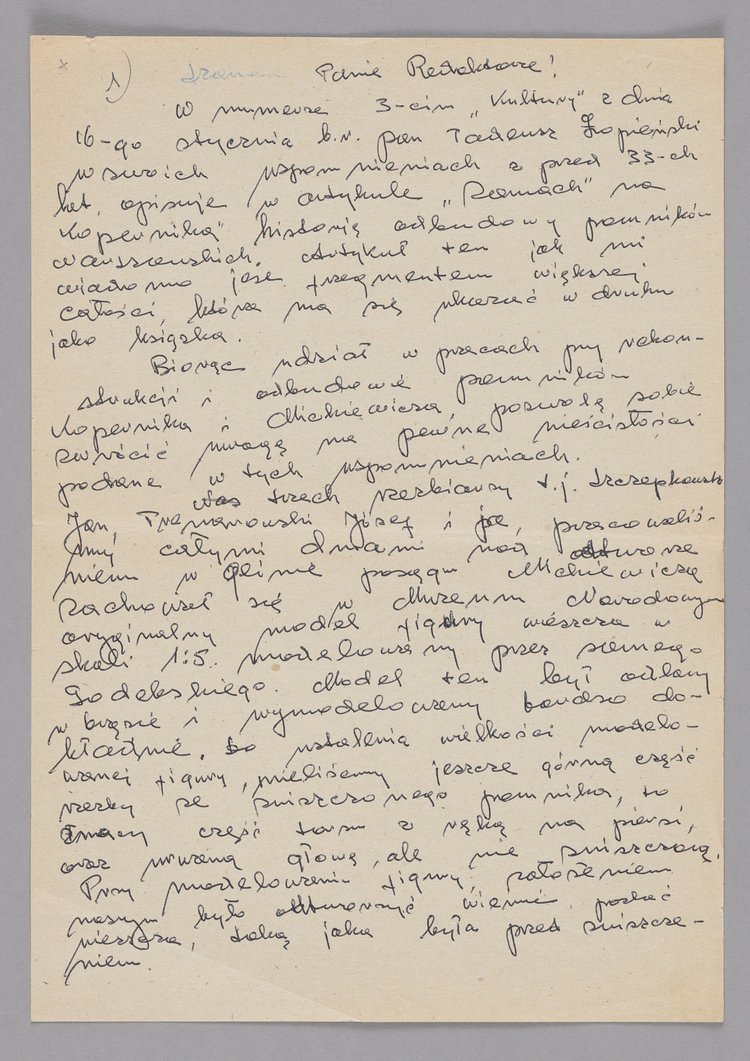 x
1) Szanow Panie Redaktorze!
W numerze 3-cim „Kultury" z dnia
16-go stycznia b.r. pan Tadeusz Łopieński
w swoich wspomnieniach z przed 33-ch
lat, opisuje w artykule „Zamach" na
Kopernika" historię odbudowy pomników
warszawskich. Artykuł ten jak mi
wiadomo jest fragmentem większej
całości, która ma się ukazać w druku
jako książka.
Biorąc udział w pracach przy rekon-
strukcji i odbudowie pomników
Kopernika i Mickiewicza, pozwolę sobie
zwrócić uwagę na pewne nieścisłości
podane w tych wspomnieniach.
Nas trzech rzeźbiarzy t.j. Szczepkowski
Jan, Trenarowski Józef i ja, pracowaliś-
my całymi dniami nad odtworze
niem w glinie posągu Mickiewicza
Zachował się w Muzeum Narodowym
oryginalny model figury wieszcza w
skali 1:5. modelowany przez samego
Godebskiego. Model ten był odlany
w brązie i wymodelowany bardzo do-
kładnie. Do ustalenia wielkości modelo-
wanej figury, mieliśmy jeszcze górną część
rzeźby ze zniszczonego pomnika, to
znaczy część torsu z ręką na piersi,
oraz urwaną głowę, ale nie zniszczoną.
Przy modelowaniu figury, założeniem
naszym było odtworzyć wiernie postać
wieszcza, taką jaka była przed zniszcze-
niem.